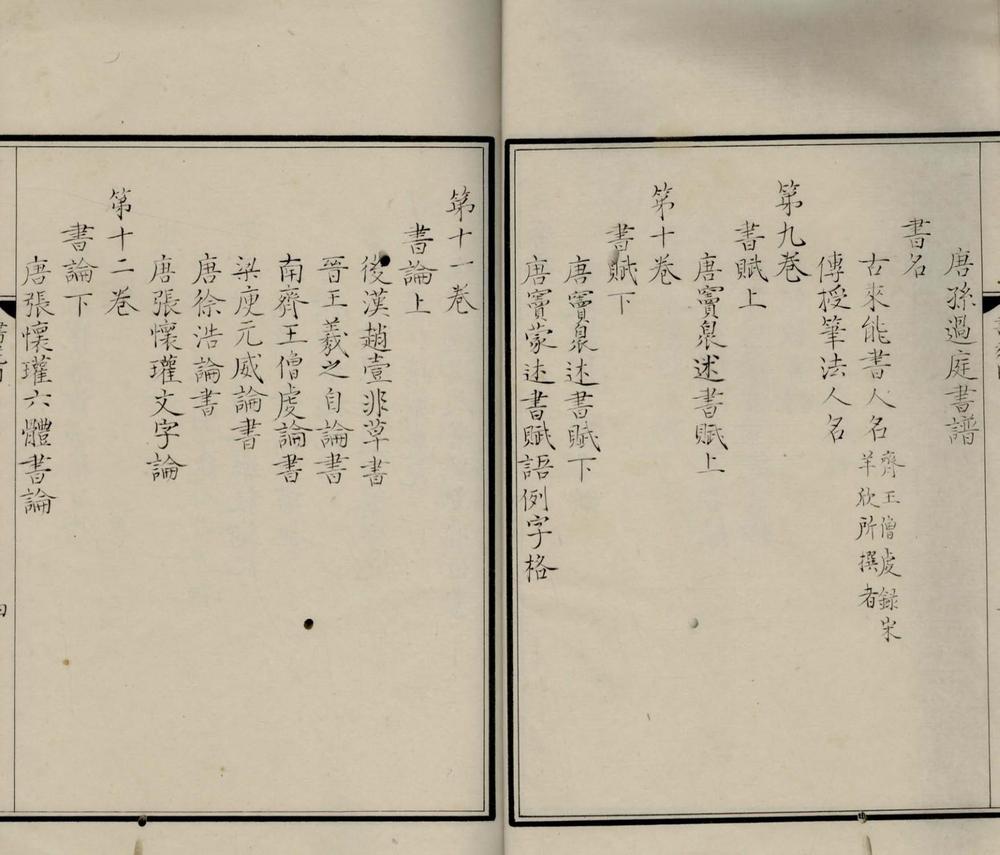 唐孫過庭書譜
書名
古來能書人名 齊王僧虔録宋
羊欣所撰者
傳授筆法人名
第九卷
書賦上
唐竇臮述書賦上
第十卷
書賦下
唐竇臮述書賦下
唐竇蒙述書賦語例字格
第十一卷
書論上
後漢趙壹非草書
晉王羲之自論書
南齊王僧虔論書
梁庾元威論書
唐徐浩論書
唐張懷瓘文字論
第十二卷
書論下
唐張懷瓘六體書論